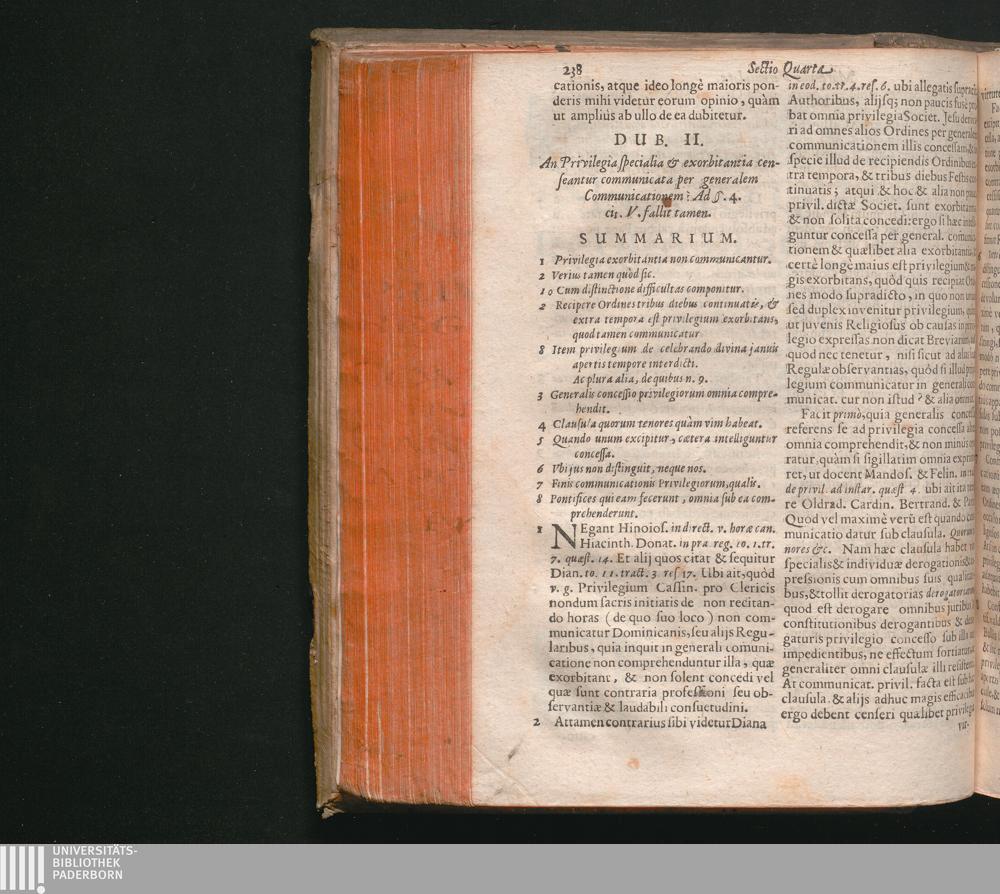 238
Sectio Quarta
cationis, atque ideo longè maioris pon-
deris mihi videtur eorum opinio, quàm
ut ampliùs ab ullo de ea dubitetur.
DUB. II.
An Privilegia specialia & exorbitantia cen-
seantur communicata per generalem
Communicationem? Ad §. 4.
cis. V. fallit tamen.
SUMMARIUM.
1 Privilegia exorbitantia non communicantur.
2 Verius tamen quòd sic.
10 Cum distinctione difficultas componitur.
2 Recipere Ordines tribus diebus continuatis, &
extra tempora est privilegium exorbitans,
quod tamen communicatur
8 Item privilegium de celebrando divina januis
apertis tempore interdicti.
Ac plura alia, de quibus n. 9.
3 Generalis concessio privilegiorum omnia compre-
hendit.
4 Clausula quorum tenores quàm vim habeat.
5 Quando unum excipitur, cætera intelliguntur
concessa.
6 Vbi jus non distinguit, neque nos.
7 Finis communicationis Privilegiorum, qualis.
8 Pontifices qui eam fecerunt, omnia sub ea com-
prehenderunt.
1 NEgant Hinoios. in direct. v. horæ can.
Hiacinth. Donat. in pra reg. to. 1. tr.
7. quæst. 14. Et alij quos citat & sequitur
Dian. to. 11. tract. 3 res 17. Ubi ait, quòd
v. g. Privilegium Cassin. pro Clericis
nondum sacris initiatis de non recitan-
do horas (de quo suo loco) non com-
municatur Dominicanis, seu alijs Regu-
laribus, quia inquit in generali comuni-
catione non comprehenduntur illa, quæ
exorbitant, & non solent concedi vel
quæ sunt contraria professioni seu ob-
servantiæ & laudabili consuetudini.
2 Attamen contrarius sibi videtur Diana
in eod. to. tr. 4. res. 6. ubi allegatis
Authoribus, alijsq; non paucis fusè
bat omnia privilegia Societ. Jesu
ri ad omnes alios Ordines per
communicationem illis concessam, &
specie illud de recipiendis Ordinibus
tra tempora, & tribus diebus Festis
tinuatis; atqui & hoc & alia non
privil. dictæ Societ. sunt exorbitantia
& non solita concedi: ergo si hæc
guntur concessa per general.
tionem & quælibet alia exorbitantia
certè longè maius est privilegium &
gis exorbitans, quòd quis recipiat
nes modo supradicto, in quo non
sed duplex invenitur privilegium,
ut juvenis Religiosus ob causas in
legio expressas non dicat Breviarium
quod nec tenetur, nisi sicut ad alias
Regulæ observantias, quòd si illud
legium communicatur in generali
municat. cur non istud? & alia
Facit primò, quia generalis
referens se ad privilegia concessa
omnia comprehendit, & non minus
ratur, quàm si sigillatim omnia
ret, ut docent Mandos. & Felin. in
de privil. ad instar. quæst 4. ubi ait ita
re Oldrad. Cardin. Bertrand. &
Quod vel maximè verũ est quando
municatio datur sub clausula. Quorum
nores &c. Nam hæc clausula habet
specialis & individuæ derogationis &
pressionis cum omnibus suis
bus, & tollit derogatorias derogatoriarum
quòd est derogare omnibus juribus
constitutionibus derogantibus &
gaturis privilegio concesso sub
impedientibus, ne effectum sortiatur
generaliter omni clausulæ illi
At communicat. privil. facta est sub
clausula. & alijs adhuc magis
ergo debent censeri quælibet
UNIVERSITÄTS-
BIBLIOTHEK
PADERBORN